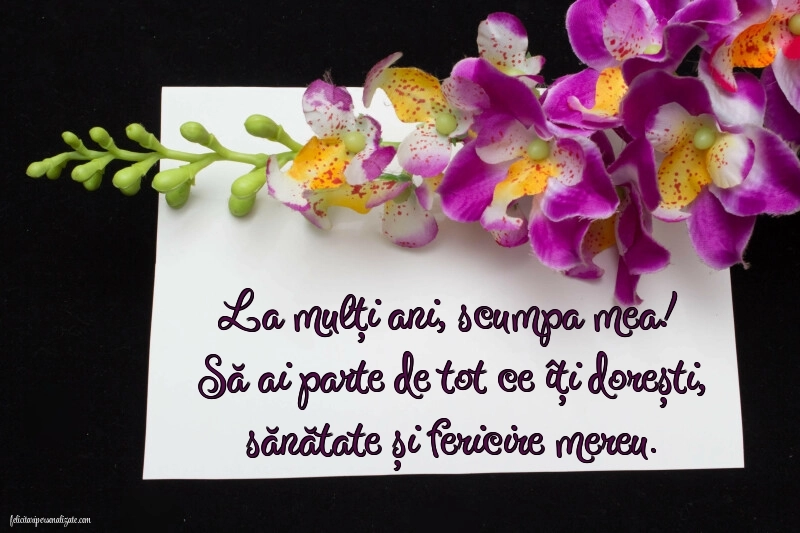 La mulți ani, scumpa mea!
Să ai parte de tot ce îți dorești,
sănătate și fericire mereu.
felicitaripersonalizate.com